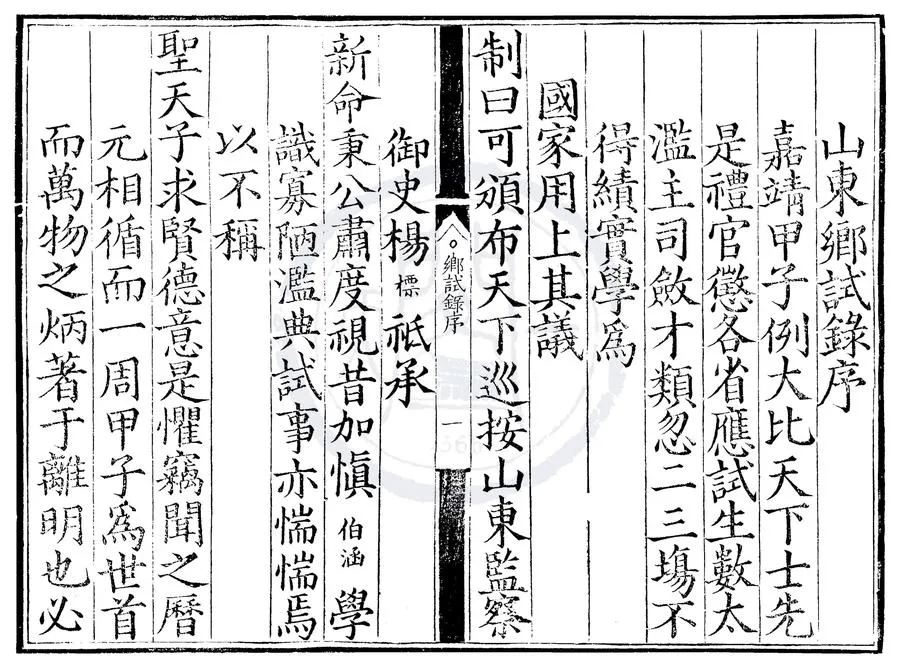 山東鄉試錄序
嘉靖甲子例大比天下士先
是禮官懲各省應試生數太
濫主司斂才類忽二三場不
得績實學爲
國家用上其議
制曰可頒布天下巡按山東監察
鄉試錄序 一
御史楊標祇承
新命秉公肅度視昔加慎伯涵學
識寡陋濫典試事亦惴惴焉
以不稱
聖天子求賢德意是懼竊聞之曆
元相循而一周甲子爲世首
而萬物之炳著于離明也必